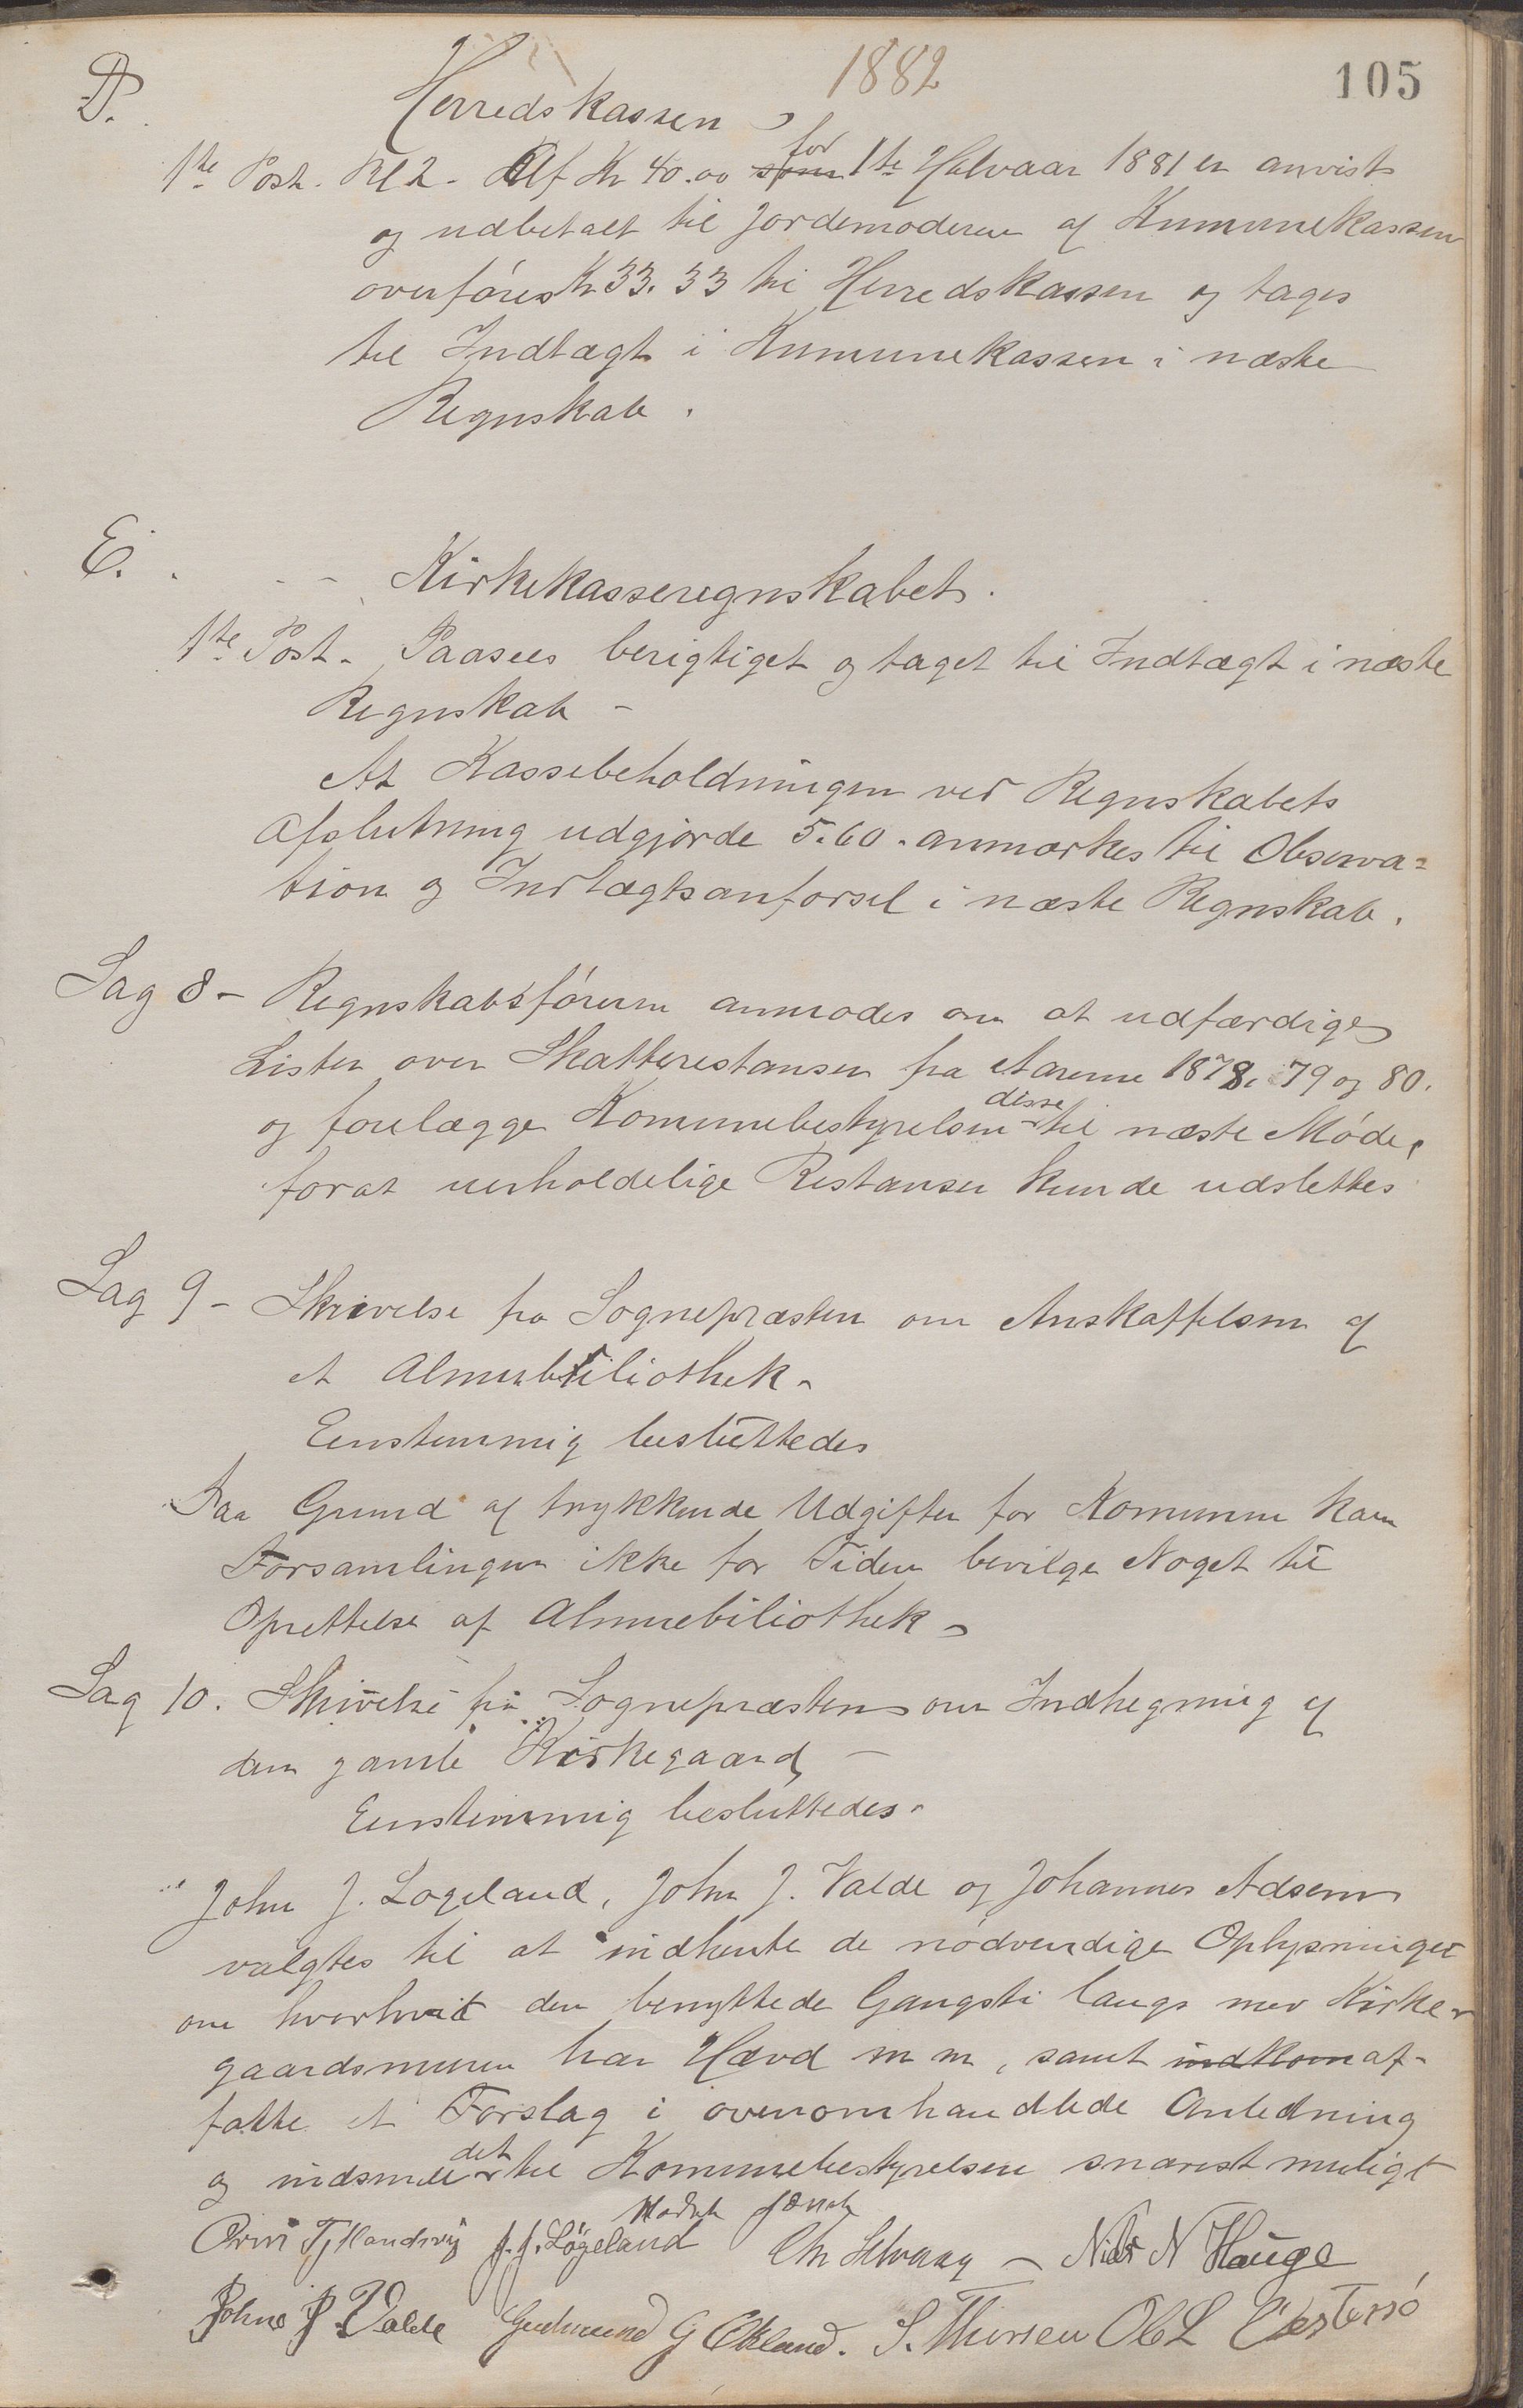 1882
105
D. Herredskassen
1te Post. Rl 2. Af Kr 40.00 som for 1te Halvaar 1881 er anvist
og udbetalt til Jordemoderen af Kummunekassen
overføres Kr 33.33 til Herredskassen og tages
til Indtægt i Kummunekassen i næste
Regnskab.
E. - - Kirkekasseregnskabet.
1te Post. Paasees berigtiget og taget til Indtægt i næste
Regnskab -
At Kassebeholdningen ved Regnskabets
Afslutning udgjørde 5.60. anmærkes til Observa=
tion og Indtægtsanførsel i næste Regnskab.
Sag 8 - Regnskabsføreren anmodes om at udfærdige
Lister over Skatterestanser fra Aarene 1878, 79 og 80.
og forelægge Komunebestyrelsen disse til næste Møde,
forat uerholdelige Restanser kunde udslettes
Sag 9 - Skrivelse fra Sognepræsten om Anskaffelsen af
et Almuebiliothek -
Eenstemmig besluttedes
Paa Grund af trykkende Udgifter for Komunen kan
Forsamlingen ikke for Tiden bevilge Noget til
Oprettelse af Almuebiliothek -
Sag 10. Skrivelse fra Sognepræsten om Indhegning af
den gamle Kirkegaard -
Eenstemmig besluttedes.
John J. Løgeland, John J. Valde og Johannes Adsen
valgtes til at indhente de nødvendige Oplysninger
om hvorhvidt den benyttede Gangsti langs med Kirke-
gaardsmuren har Hævd m m, samt indkom af-
fatte et Forslag i ovenomhandlede Anledning
og indsende det til Komunebestyrelsen snarest muligt
J. J. Løgeland Chr Selvaag - Niels N Hauge
Johne J. Valde Gudmund G Økland. S. Thorsen Ole L